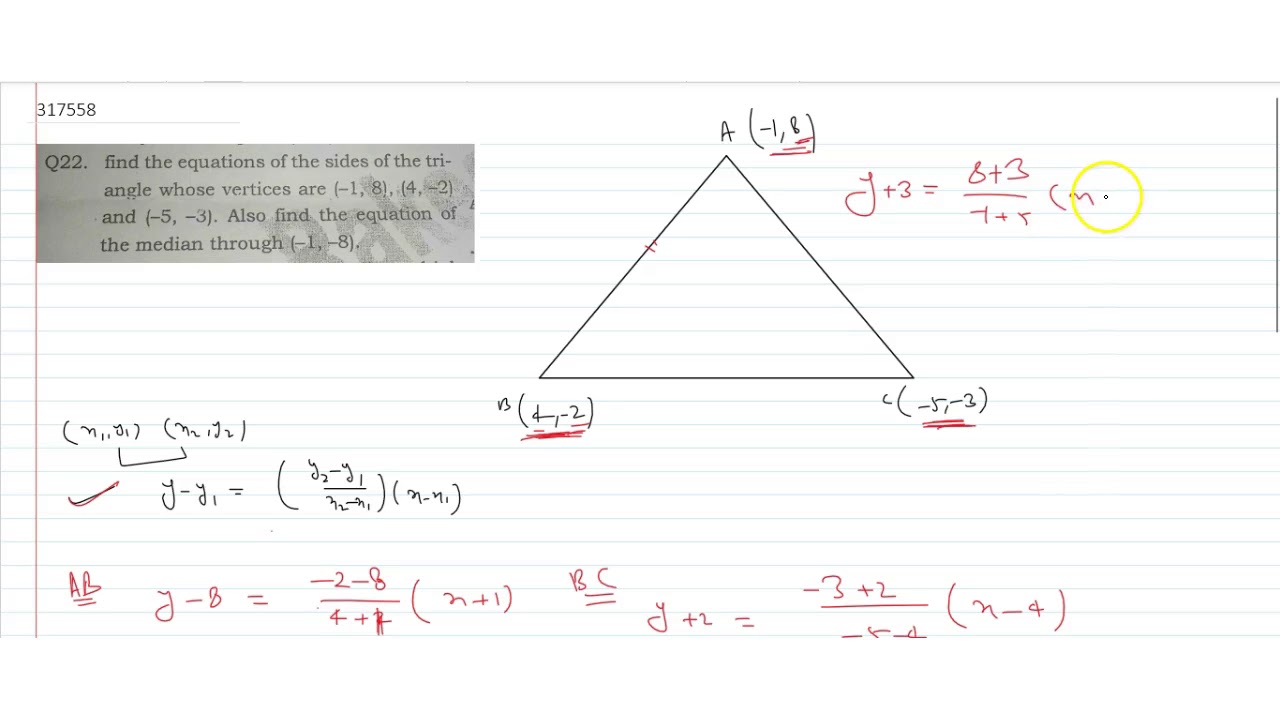 317558
Q22. find the equations of the sides of the tri-
angle whose vertices are (–1, 8), (4, –2)
and (–5, –3). Also find the equation of
the median through (–1, –8).
A (-1, 8)
y+3 = 8+3/-1+5 (x
B (4, -2)
C (-5, -3)
(x1, y1) (x2, y2)
y-y1 = (y2-y1/x2-x1) (x-x1)
AB y-8 = -2-8/4+1 (x+1)
BC y+2 = -3+2/-5-4 (x-4)